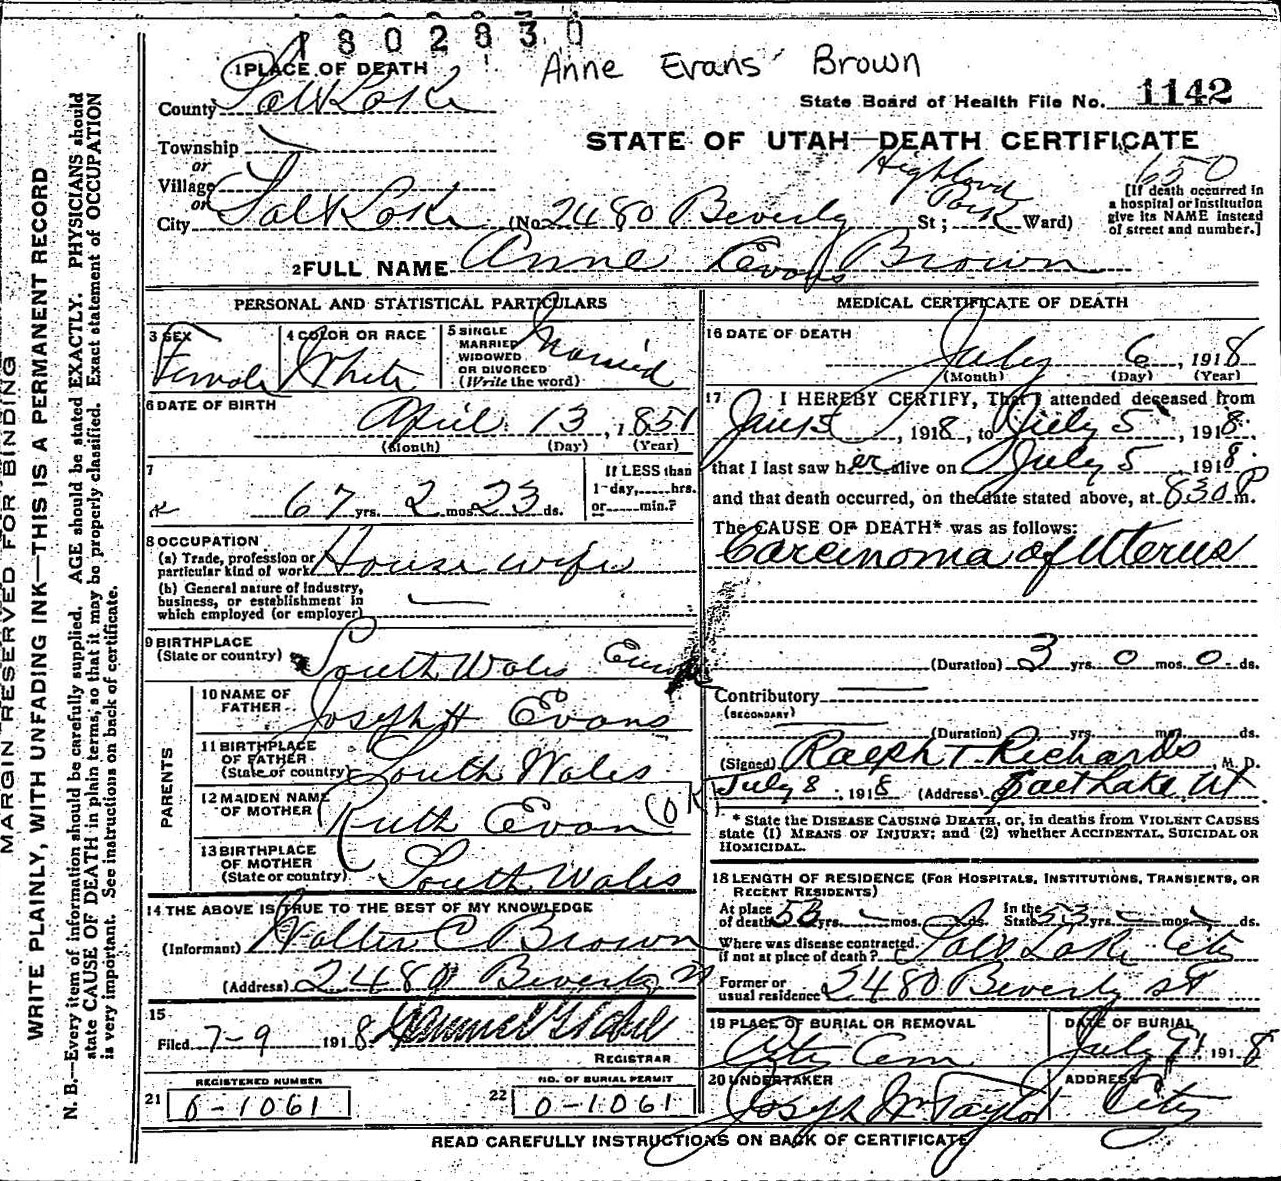 1802830
Anne Evans Brown
1 PLACE OF DEATH
County Salt Lake
State Board of Health File No. 1142
STATE OF UTAH—DEATH CERTIFICATE
Township
or
Village
or
City Salt Lake (No. 2480 Beverly St; Highland Park Ward)
650
[If death occurred in
a hospital or institution
give its NAME instead
of street and number.]
2 FULL NAME Anne Evans Brown
PERSONAL AND STATISTICAL PARTICULARS
3 SEX Female
4 COLOR OR RACE White
5 SINGLE
MARRIED
WIDOWED
OR DIVORCED
(Write the word)
Married
6 DATE OF BIRTH
April 13, 1851
(Month) (Day) (Year)
7
67 yrs. 2 mos. 23 ds.
If LESS than
1 day,......hrs.
or......min.?
8 OCCUPATION
(a) Trade, profession or
particular kind of work House wife
(b) General nature of industry,
business, or establishment in
which employed (or employer)
9 BIRTHPLACE
(State or country) South Wales Europe
PARENTS
10 NAME OF
FATHER Joseph H Evans
11 BIRTHPLACE
OF FATHER
(State or country) South Wales
12 MAIDEN NAME
OF MOTHER Ruth Evan (OK)
13 BIRTHPLACE
OF MOTHER
(State or country) South Wales
14 THE ABOVE IS TRUE TO THE BEST OF MY KNOWLEDGE
(Informant) Walter C Brown
(Address) 2480 Beverly st
15
Filed 7-9 1918
REGISTRAR
REGISTERED NUMBER
21 0-1061
NO. OF BURIAL PERMIT
22 0-1061
MEDICAL CERTIFICATE OF DEATH
16 DATE OF DEATH
July 6, 1918
(Month) (Day) (Year)
17 I HEREBY CERTIFY, That I attended deceased from
, 1918, to July 5, 1918.
that I last saw her alive on July 5 1918.
and that death occurred, on the date stated above, at 830 P m.
The CAUSE OF DEATH* was as follows:
Carcinoma of Uterus
(Duration) 3 yrs. 0 mos. 0 ds.
Contributory
(SECONDARY)
(Duration) yrs. mos. ds.
(Signed) Ralph T. Richards, M. D.
July 8, 1918 (Address) Salt Lake, Ut
* State the DISEASE CAUSING DEATH, or, in deaths from VIOLENT CAUSES
state (1) MEANS OF INJURY; and (2) whether ACCIDENTAL, SUICIDAL OR
HOMICIDAL.
18 LENGTH OF RESIDENCE (FOR HOSPITALS, INSTITUTIONS, TRANSIENTS, OR
RECENT RESIDENTS)
At place
of death 53 yrs. mos. ds.
In the
State 53 yrs. mos. ds.
Where was disease contracted,
if not at place of death? Salt Lake City
Former or
usual residence 2480 Beverly st
19 PLACE OF BURIAL OR REMOVAL
City Cem
DATE OF BURIAL
July 9, 1918
20 UNDERTAKER
Joseph Wm Taylor
ADDRESS
City
READ CAREFULLY INSTRUCTIONS ON BACK OF CERTIFICATE
MARGIN RESERVED FOR BINDING
WRITE PLAINLY, WITH UNFADING INK—THIS IS A PERMANENT RECORD
N. B.—Every item of information should be carefully supplied. AGE should be stated EXACTLY. PHYSICIANS should
state CAUSE OF DEATH in plain terms, so that it may be properly classified. Exact statement of OCCUPATION
is very important. See instructions on back of certificate.